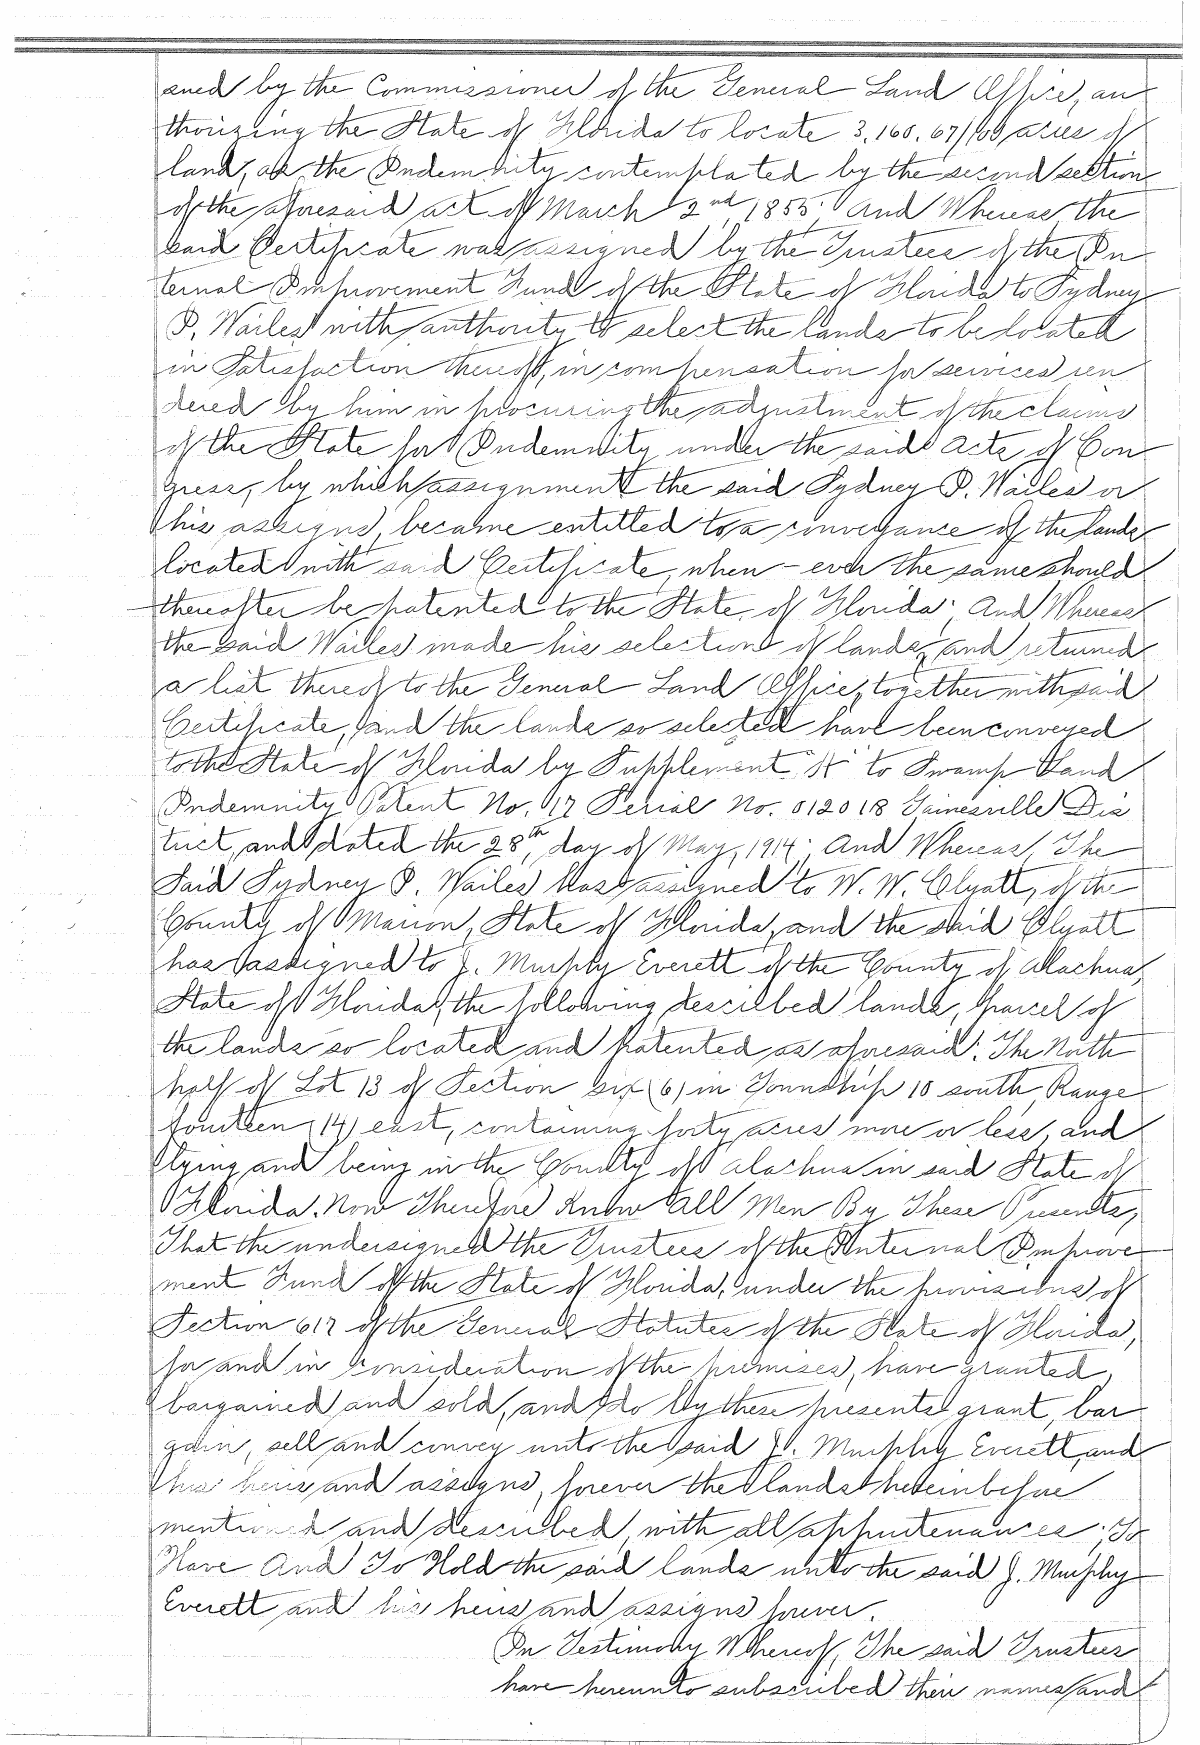 sued by the Commissioner of the General Land Office, au
thorizing the State of Florida to locate 3,160.67/100 acres of
land, as the Indemnity contemplated by the second section
of the aforesaid act of March 2nd, 1855; And Whereas the
said Certificate was assigned by the Trustees of the In
ternal Improvement Fund of the State of Florida to Sydney
I. Wailes with authority to select the lands to be located
in Satisfaction thereof, in compensation for services ren
dered by him in procuring the adjustment of the claims
of the State for Indemnity under the said Acts of Con
gress, by which assignment the said Sydney I. Wailes or
his assigns, became entitled to a conveyance of the lands
located with said Certificate, when-ever the same should
thereafter be patented to the State of Florida; And Whereas
the said Wailes made his selection of lands, and returned
a list thereof to the General Land Office, together with said
Certificate, and the lands so selected have been conveyed
to the State of Florida by Supplement "H" to Swamp Land
Indemnity Patent No. 17 Serial No. 012018 Gainesville Dis
trict, and dated the 28th, day of May, 1914; And Whereas, The
Said Sydney I. Wailes has assigned to W. W. Clyatt, of the
County of Marion, State of Florida, and the said Clyatt
has assigned to J. Murphy Everett of the County of Alachua,
State of Florida, the following described lands, parcel of
the lands so located and patented as aforesaid: The North
half of Lot 13 of Section six (6) in Township 10 south, Range
fourteen (14) east, containing forty acres more or less, and
lying and being in the County of Alachua in said State of
Florida. Now Therefore Know All Men By These Presents,
That the undersigned the Trustees of the Internal Improve
ment Fund of the State of Florida, under the provisions of
Section 617 of the General Statutes of the State of Florida,
for and in consideration of the premises, have granted,
bargained and sold, and do by these presents grant, bar
gain, sell and convey unto the said J. Murphy Everett, and
his heirs and assigns, forever the lands hereinbefore
mentioned and described, with all appurtenances; To
Have And To Hold the said lands unto the said J. Murphy
Everett and his heirs and assigns forever.
In Testimony Whereof, The said Trustees
have hereunto subscribed their names and